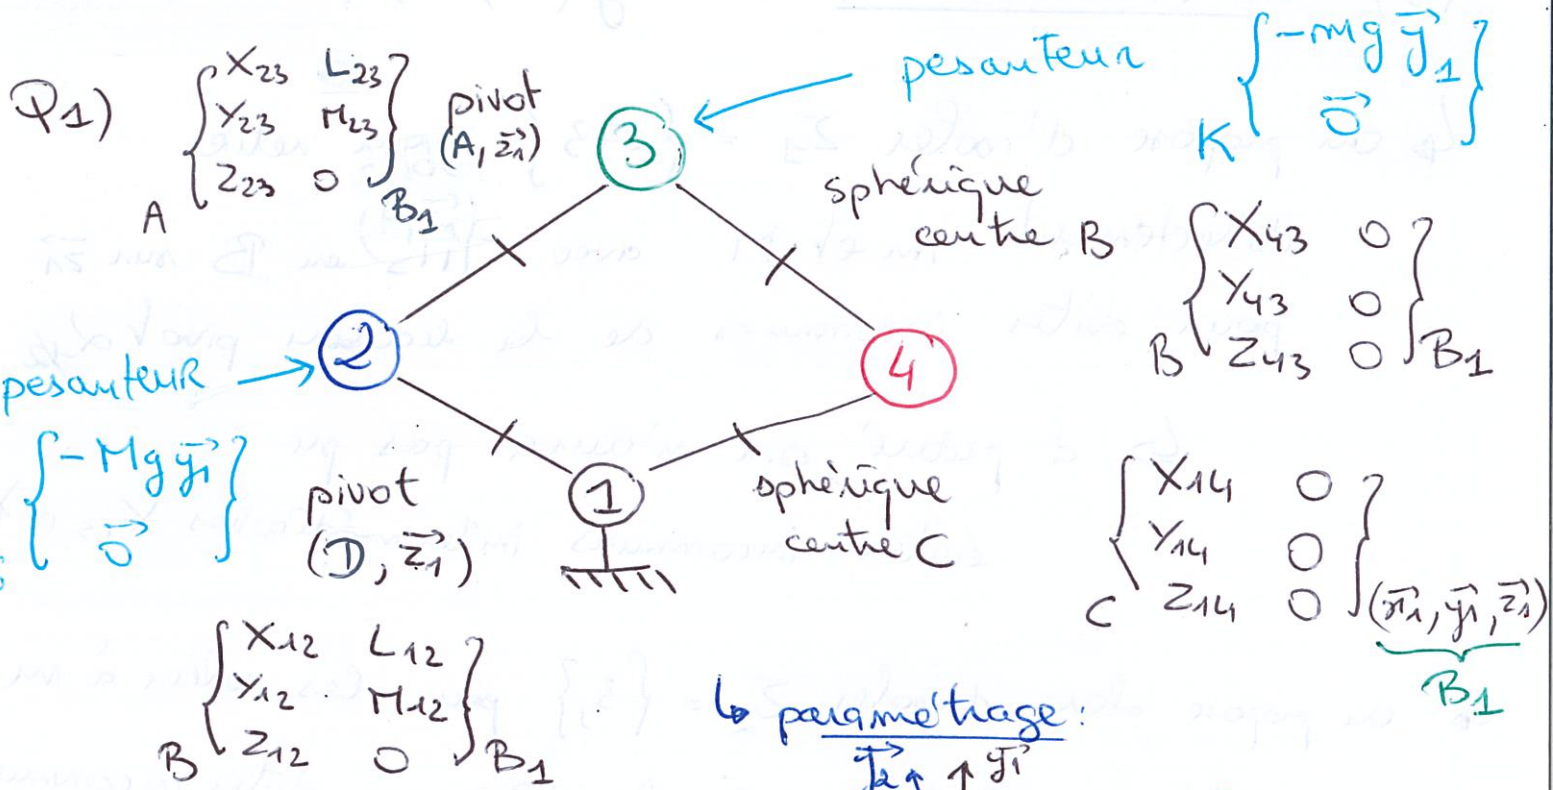 Q1)
A { X23 L23
Y23 M23
Z23 0 } B1
pivot
(A, z⃗1)
3
pesanteur
K { -mg y⃗1
0⃗ }
sphérique
centre B
B { X43 0
Y43 0
Z43 0 } B1
2
4
pesanteur
{ -Mg y⃗1
0⃗ }
pivot
(D, z⃗1)
1
sphérique
centre C
C { X14 0
Y14 0
Z14 0 } (x⃗1, y⃗1, z⃗1)
B1
B { X12 L12
Y12 M12
Z12 0 } B1
↳ paramétrage :
y⃗2 ↑ ↑ y⃗1